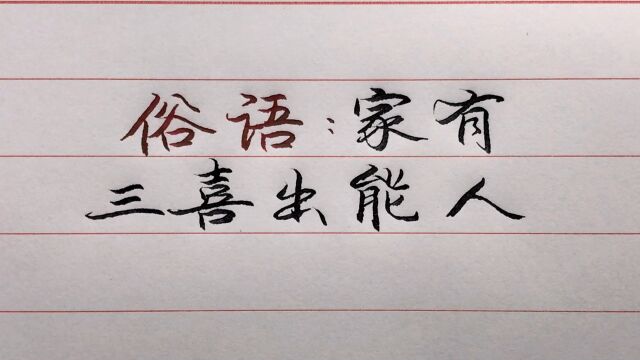 俗语:家有
三喜出能人